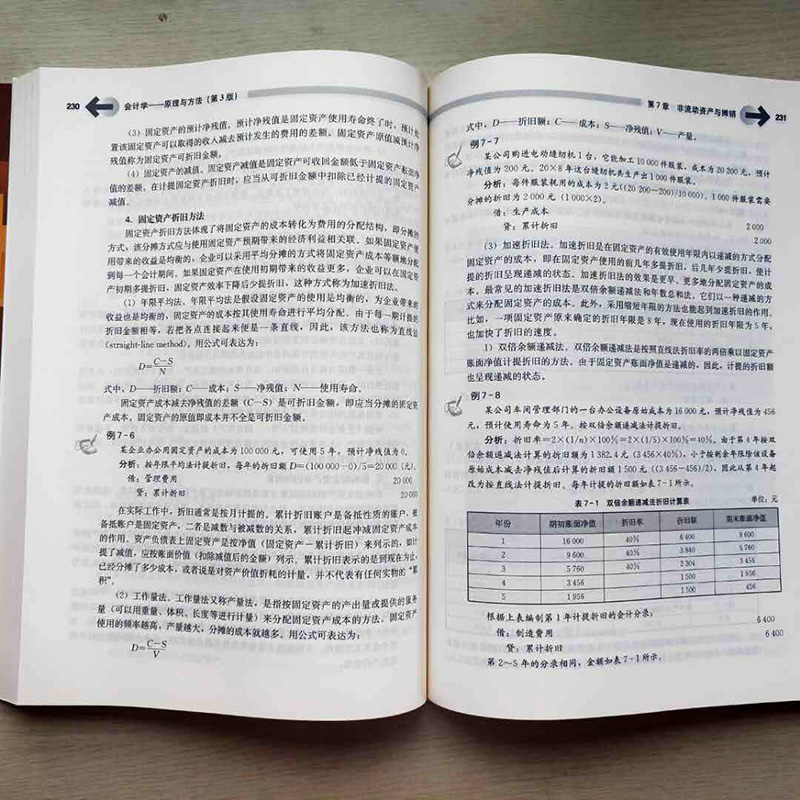 230 会计学——原理与方法（第3版）
（3）固定资产的预计净残值。预计净残值是固定资产使用寿命终了时，预计处
置该固定资产可以取得的收入减去预计发生的费用的差额。固定资产原值减预计净
残值称为固定资产可折旧金额。
（4）固定资产的减值。固定资产减值是固定资产可收回金额低于固定资产账面净
值的差额。在计提固定资产折旧时，应当从可折旧金额中扣除已经计提的固定资产
减值。
4. 固定资产折旧方法
固定资产折旧方法体现了将固定资产的成本转化为费用的分配结构，即分摊的
方式，该分摊方式应与使用固定资产预期带来的经济利益相关联。如果固定资产使
用带来的收益是均衡的，企业可以采用平均分摊的方式将固定资产成本等额地分配
到每一个会计期间。如果固定资产在使用初期带来的收益更多，企业可以在固定资
产初期多提折旧，固定资产效率下降后少提折旧，这种方式称为加速折旧法。
（1）年限平均法。年限平均法是假设固定资产的使用是均衡的，为企业带来的
收益也是均衡的，固定资产的成本按其使用寿命进行平均分配。由于每一期计提的
折旧金额相等，若把各点连接起来便是一条直线，因此，该方法也称为直线法
(straight-line method)。用公式可表达为：
D=(C−S)/N
式中，D——折旧额；C——成本；S——净残值；N——使用寿命。
固定资产成本减去净残值的差额（C−S）是可折旧金额，即应当分摊的固定资
产成本。固定资产的原值即成本并不全是可折旧金额。
例 7-6
某企业办公用固定资产的成本为100 000元，可使用5年，预计净残值为0。
分析：按年限平均法计提折旧，每年的折旧额 D=(100 000−0)/5=20 000（元）。
借：管理费用 20 000
贷：累计折旧 20 000
在实际工作中，折旧通常是按月计提的。累计折旧账户是备抵性质的账户，被
备抵账户是固定资产，二者是减数与被减数的关系，累计折旧起冲减固定资产成本
的作用。资产负债表上固定资产是按净值（固定资产−累计折旧）来列示的，如计
提了减值，应按账面价值（扣除减值后的金额）列示。累计折旧表示的是到现在为止，
已经分摊了多少成本，或者说是对资产价值折耗的计量，并不代表有任何实物的“累
积”。
（2）工作量法。工作量法又称产量法，是指按固定资产的产出量或提供的服务
量（可以用重量、体积、长度等进行计量）来分配固定资产成本的方法。固定资产
使用的频率越高，产量越大，分摊的成本就越多。用公式可表达为：
D=(C−S)/V
第7章 非流动资产与摊销 231
式中，D——折旧额；C——成本；S——净残值；V——产量。
例 7-7
某公司购进电动缝纫机1台，它能加工10 000件服装，成本为20 200元，预计
净残值为200元。20×8年这台缝纫机共生产出1 000件服装。
分析：每件服装耗用的成本为2元((20 200−200)/10 000)。1 000件服装需要
分摊的折旧为2 000元（1 000×2）。
借：生产成本 2 000
贷：累计折旧 2 000
（3）加速折旧法。加速折旧是在固定资产的有效使用年限内以递减的方式分配
固定资产的成本，即在固定资产使用的前几年多提折旧，后几年少提折旧，使计
提的折旧呈现递减的状态。加速折旧法的效果是更早、更多地分配固定资产的成
本。最常见的加速折旧法是双倍余额递减法和年数总和法。它们以一种递减的方
式来分配固定资产的成本。此外，采用缩短年限的方法也能起到加速折旧的作用。
比如，一项固定资产原来确定的折旧年限是8年，现在使用的折旧年限为5年，
也加快了折旧的速度。
1）双倍余额递减法。双倍余额递减法是按照直线法折旧率的两倍乘以固定资产
账面净值计提折旧的方法。由于固定资产账面净值是递减的，因此，计提的折旧额
也呈现递减的状态。
例 7-8
某公司车间管理部门的一台办公设备原始成本为16 000元，预计净残值为456
元，预计使用寿命为5年。按双倍余额递减法计提折旧。
分析：折旧率=2×(1/n)×100%=2×(1/5)×100%=40%。由于第4年按双
倍余额递减法计算的折旧额为1 382.4元（3 456×40%），小于按剩余年限除以设备
原始成本减去净残值后计算的折旧额1 500元（(3 456−456)/2），因此从第4年起
改为按直线法计提折旧。每年计提的折旧额如表7-1所示。
表 7-1 双倍余额递减法折旧计算表 单位：元
年份 期初账面净值 折旧率 折旧额 期末账面净值
1 16 000 40% 6 400 9 600
2 9 600 40% 3 840 5 760
3 5 760 40% 2 304 3 456
4 3 456 1 500 1 956
5 1 956 1 500 456
根据上表编制第1年计提折旧的会计分录：
借：制造费用 6 400
贷：累计折旧 6 400
第2～5年的分录相同，金额如表7-1所示。